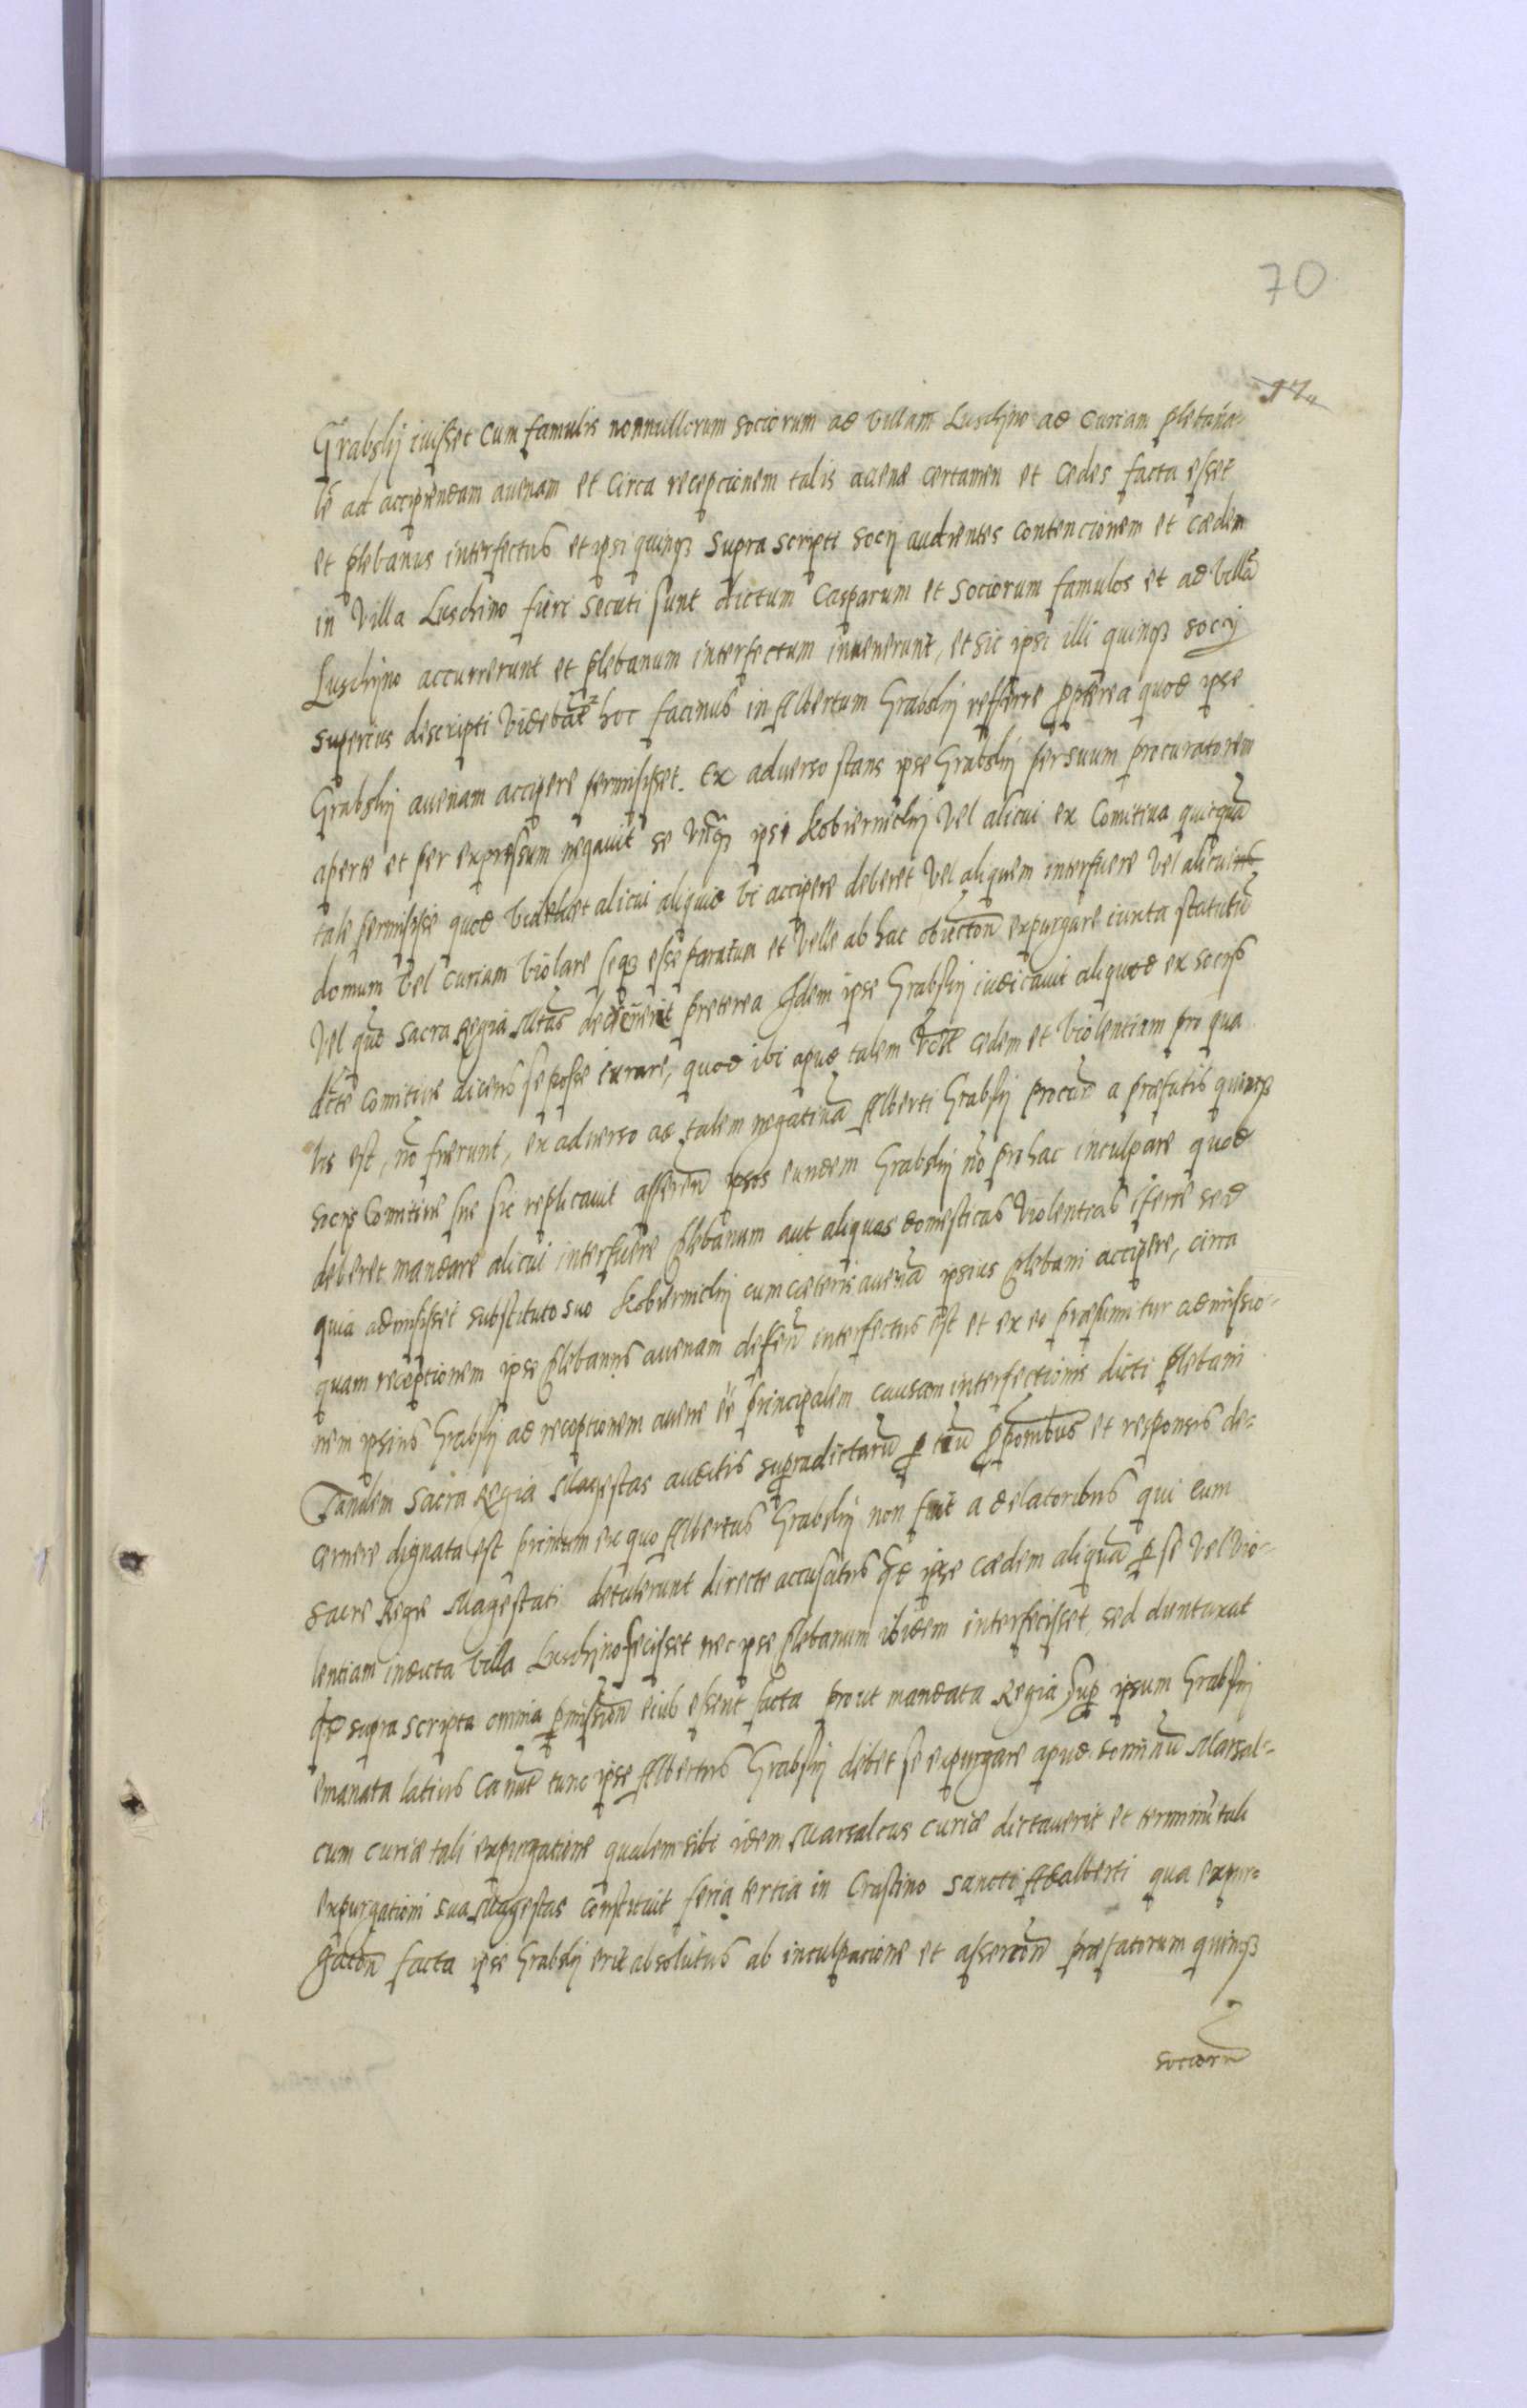 70
17
Grabskÿ iuisset cum famulis nonnullorum sociorum ad villam Luschÿno ad curiam plebana-
lē ad accipiendam auenam et circa recepcionem talis auenæ certamen et cedes facta esset
et plebanus interfectus et ipsi quinqȝ supra scripti socij audientes contencionem et cædem
in villa Luschino fieri secuti sunt dictum Casparum et sociorum famulos et ad villā
Luschÿno accurrerunt et plebanum interfectum inuenerunt, et sic ipsi illi quinqȝ socÿ
superius descripti hoc facinus in Albertum Grabskÿ refferre ꝓpterea quod ipse
Grabskÿ auenam accipere permisisset. Ex aduerso stans ipse Grabskÿ per suum procuratorem
aperte et per expressum negauit se ipsi Kobiernickÿ vel alicui ex Comitiua quicquā
tale permisisse quod alicui aliquid vi accipere deberet vel aliquem interficere vel alicuius
domum vel curiam violare seqȝ esse paratum et velle ab hac obiectōn expurgare iuxta statutū
vel quō sacra Regia Mtās decreuerit preterea Idem ipse Grabskÿ iudicauit aliquod ex socijs
dc̄te comitiue dicens se posse iurare, quod ibi apud talem cedem et violentiam pro qua
lis est, nō fuerunt, ex aduerso ad talem negatiuā Alberti Grabskÿ procurō a præfatis quinqȝ
socijs Comitiue sue sic replicauit asserēn ipsos eundem Grabskÿ nō pro hac inculpare quod
deberet mandare alicui interficere plebanum aut aliquas domesticas violentias īferre sed
quia admisisset substituto suo Kobiernickÿ cum cæteris auenā ipsius plebani accipere, circa
quam receptionem ipse plebanus auenam defen̄ interfectus est et ex eo præsumitur admissio-
nem ipsius Grabskÿ ad receptionem auene eē principalem causam interfectionis dicti plebani
Tandem Sacra Regia Magestas auditis supradictarū ꝑtiū ꝓponibus et responsis de-
cernere dignata est primum ex quo Albertus Grabskÿ non fuit a delatoribus qui eum
Sacre Regie Magestati detulerunt directe accusatus qđ ipse cædem aliquā ꝑ se vel vio-
lentiam in dicta villa Luschÿno fecisset nec ipse plebanum ibidem interfecisset, sed duntaxat
qđ supra scripta omnia ꝑmissiōn eius essent facta prout mandata Regia sup̱ ipsum Grabskÿ
emanata latius canūt tunc ipse Albertus Grabskÿ debet se expurgare apud dominū Marsal-
cum curiæ tali expurgatione qualem sibi idem Marsalcus curiæ dictauerit et terminū tali
expurgationi sua Magestas constituit feria tertia in Crastino sancti Adalberti qua expur-
gatōn facta ipse Grabskÿ erit absolutus ab inculpacione et assercōn præfatorum quinqȝ
sociorū